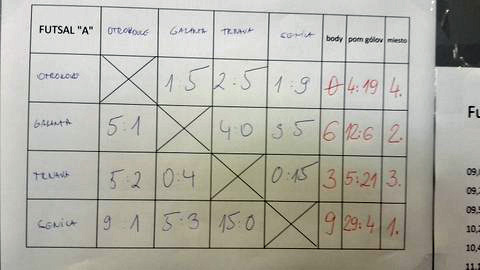 FUTSAL "A" OTROKOVCE GALANTA TRNAVA SENICA body pom gólov miesto
OTROKOVCE 1 5 2:5 1:9 0 4:19 4.
GALANTA 5:1 4:0 3 5 6 12:6 2.
TRNAVA 5:2 0:4 0:15 3 5:21 3.
SENICA 9 1 5:3 15:0 9 29:4 1.
Fu
09,0
09,2
09,5
10,2
10,4
11,1